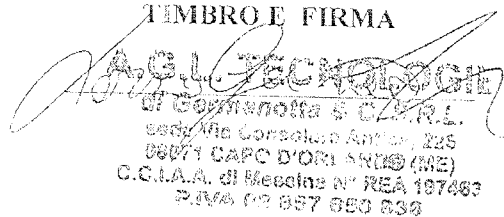 TIMBRO E FIRMA
A.G.I. TECNOLOGIE
di Germanotta & C. S.R.L.
sede Via Consolare Antica, 225
98071 CAPO D'ORLANDO (ME)
C.C.I.A.A. di Messina N° REA 197463
P.IVA 02 857 650 836